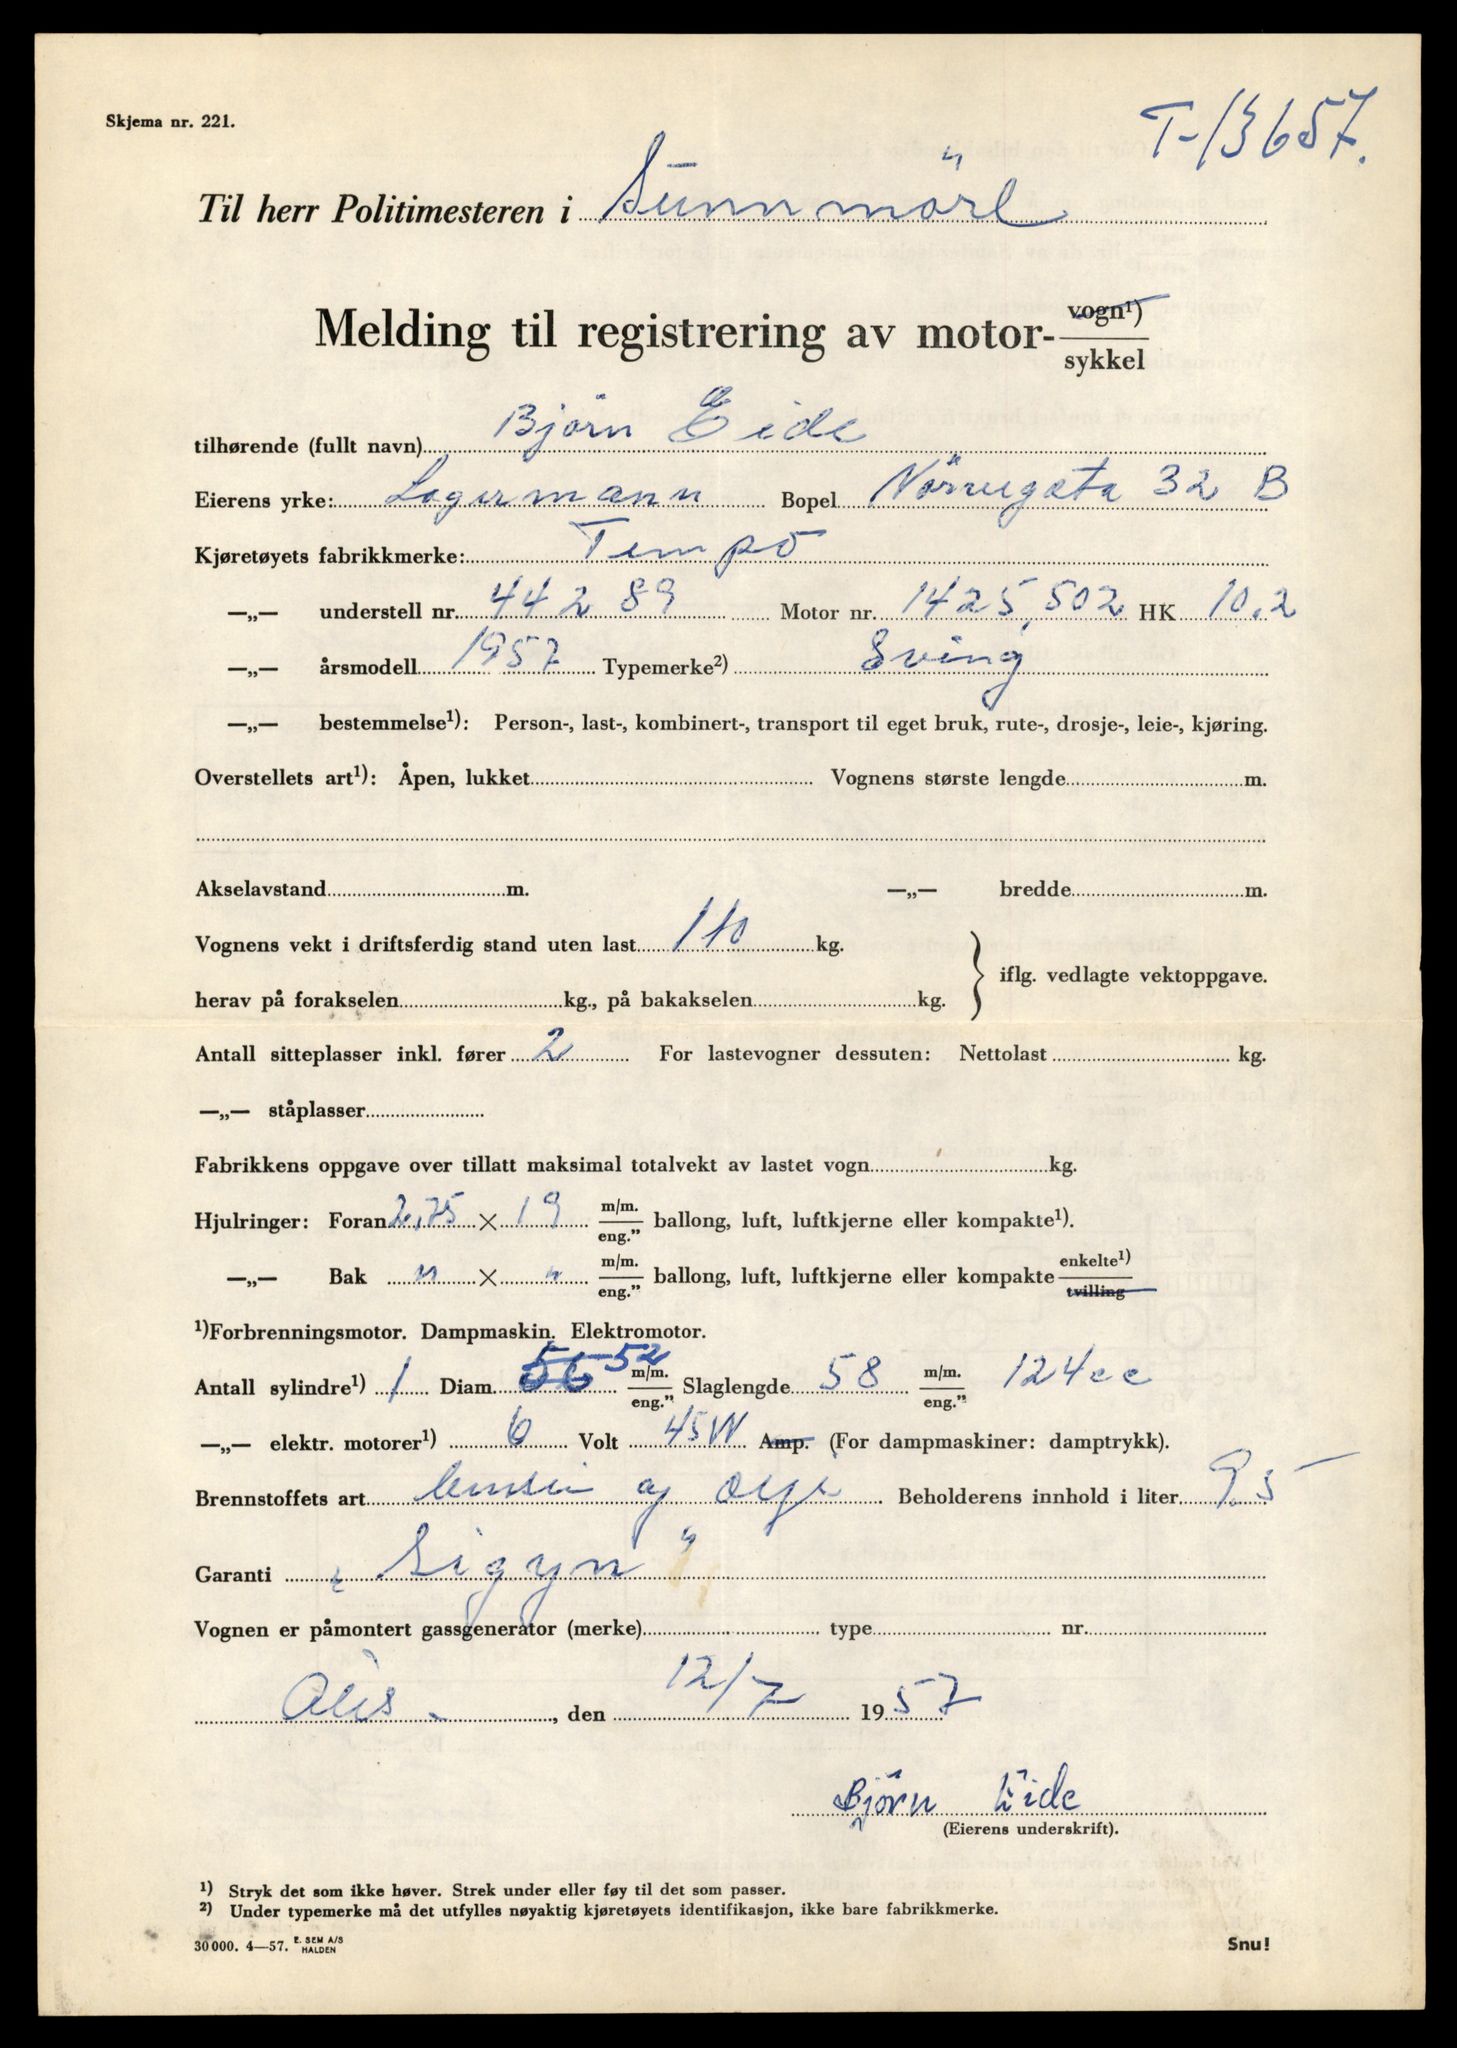 Skjema nr. 221.
T-13657.
Til herr Politimesteren i Sunnmöre
Melding til registrering av motor- vogn¹) / sykkel
tilhørende (fullt navn) Björn Eide
Eierens yrke: Lagermann Bopel Nörregata 32 B
Kjøretøyets fabrikkmerke: Tempo
—„— understell nr. 44289 Motor nr. 1425,502 HK 10.2
—„— årsmodell 1957 Typemerke²) Sving
—„— bestemmelse¹): Person-, last-, kombinert-, transport til eget bruk, rute-, drosje-, leie-, kjøring.
Overstellets art¹): Åpen, lukket Vognens største lengde m.
Akselavstand m. —„— bredde m.
Vognens vekt i driftsferdig stand uten last 110 kg.
iflg. vedlagte vektoppgave.
herav på forakselen kg., på bakakselen kg.
Antall sitteplasser inkl. fører 2 For lastevogner dessuten: Nettolast kg.
—„— ståplasser
Fabrikkens oppgave over tillatt maksimal totalvekt av lastet vogn kg.
Hjulringer: Foran 2,75 × 19 m/m. / eng." ballong, luft, luftkjerne eller kompakte¹).
—„— Bak " × " m/m. / eng." ballong, luft, luftkjerne eller kompakte enkelte¹) / tvilling
¹)Forbrenningsmotor. Dampmaskin. Elektromotor.
Antall sylindre¹) 1 Diam. 56 52 m/m. / eng." Slaglengde 58 m/m. / eng." 124cc
—„— elektr. motorer¹) 6 Volt 45W Amp. (For dampmaskiner: damptrykk).
Brennstoffets art bensin og olje Beholderens innhold i liter 9.5
Garanti „Sigyn"
Vognen er påmontert gassgenerator (merke) type nr.
, den 12/7 1957
Björn Eide
(Eierens underskrift).
¹) Stryk det som ikke høver. Strek under eller føy til det som passer.
²) Under typemerke må det utfylles nøyaktig kjøretøyets identifikasjon, ikke bare fabrikkmerke.
30 000. 4—57. E. SEM A/S HALDEN
Snu!